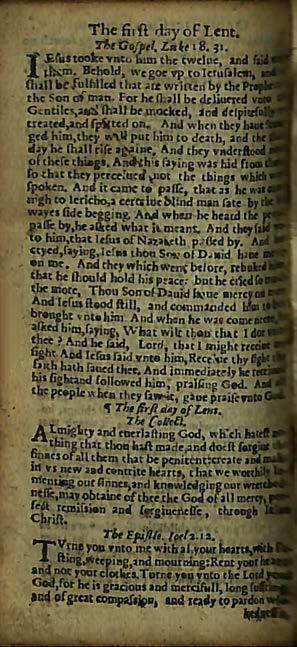 The first day of Lent.
The Gospel, Luke 18. 31.
IEsus tooke vnto him the twelue, and said
them. Behold, we goe vp to Ierusalem, and
shall be fulfilled that are written by the Prophe
the Son of man. For he shall be deliuered vnto
Gentiles, and shall be mocked, and despitefully
treated, and spitted on. And when they haue
ged him, they will put him to death, and the
day he shall rise againe. And they vnderstood
of these things. And this saying was hid from
so that they perceiued not the things which
spoken. And it came to passe, that as he was
nigh to Iericho, a certaine blind man sate by the
wayes side begging. And when he heard the pe
passe by, he asked what it meant. And they said
to him, that Iesus of Nazareth passed by. And
cryed, saying, Iesus thou Son of Dauid haue
on me. And they which went before, rebuked
that he should hold his peace: but he cried so
the more, Thou Son of Dauid haue mercy on
And Iesus stood still, and commanded him to
brought vnto him. And when he was come neere,
asked him, saying, What wilt thou that I doe vn
thee? And he said, Lord, that I might receiue
sight. And Iesus said vnto him, Receiue thy sight
faith hath saued thee. And immediately he receiued
his sight and followed him, praising God. And
the people when they saw it, gaue praise vnto God.
¶ The first day of Lent.
The Collect.
ALmighty and euerlasting God, which hatest
thing that thou hast made, and dost forgiue
sinnes of all them that be penitent: create and make
in vs new and contrite hearts, that we worthily
menting our sinnes, and knowledging our wretched
nesse, may obtaine of thee, the God of all mercy, per
fect remission and forgiuenesse, through
Christ.
The Epistle. Ioel 2. 12.
TVrne you vnto me with al your hearts, with
sting, weeping, and mourning: Rent your hearts
and not your clothes. Turne you vnto the Lord your
God, for he is gracious and mercifull, long suffering
and of great compassion, and ready to pardon
kednesse